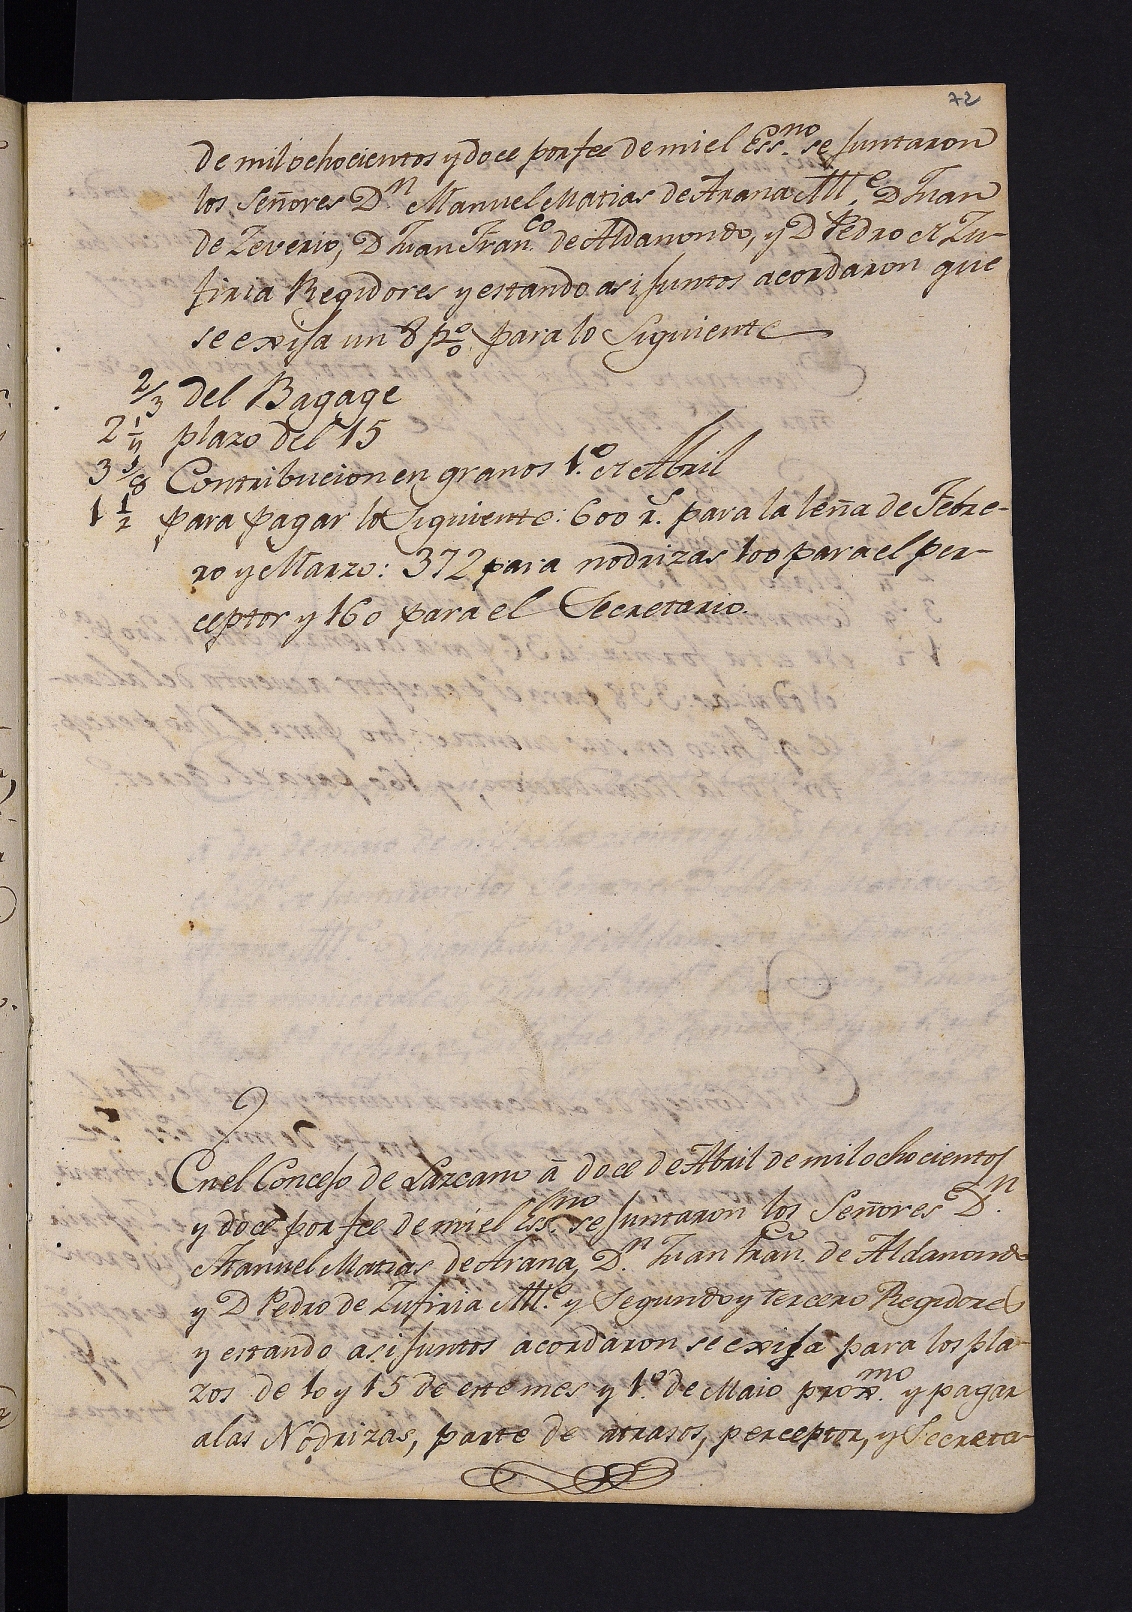 72
de mil ochocientos y doce por fee de mi el Ess.no se juntaron
los Señores D.n Manuel Matias de Arana Al.e D Juan
de Zeverio, D Juan Fran.co de Aldanondo, y D Pedro de Zu-
firia Regidores y estando asi juntos acordaron que
se exija un 8 p%o para lo Siguiente
2/3 del Bagage
2 1/4 plazo del 15
3 5/8 Contribucion en granos 1.o de Abril
1 1/2 para pagar lo Siguiente: 600 r.s para la leña de Febre-
ro y Marzo: 372 para nodrizas 100 para el per-
ceptor y 160 para el Secretario.
En el Concejo de Lazcano â doce de Abril de mil ochocientos
y doce por fee de mi el Ess.mo se juntaron los Señores D.n
Manuel Matias de Arana, D.n Juan Fran.co de Aldanondo
y D Pedro de Zufiria Al.e y Segundo y tercero Regidores
y estando asi juntos acordaron se exija para los pla-
zos de 10 y 15 de este mes y 1.o de Maio prox.mo y pagar
a las Nodrizas, parte de atrasos, perceptor, y Secreta-